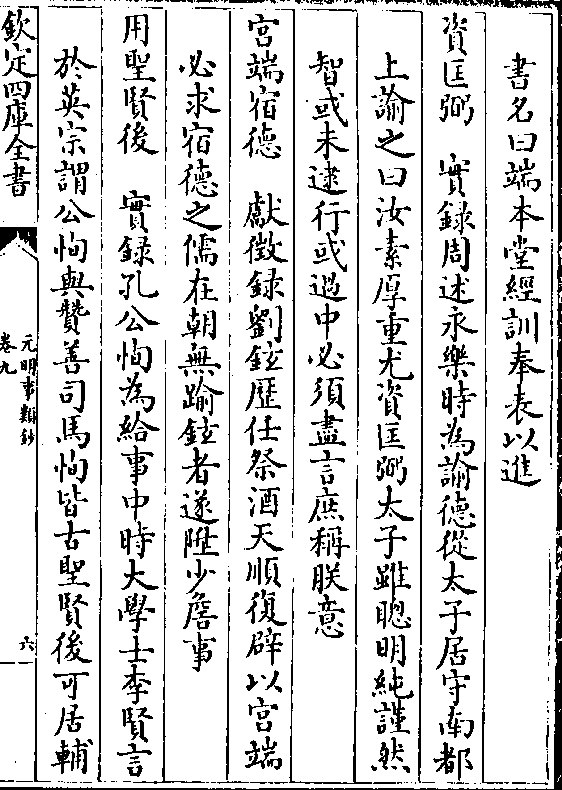 書名曰端本堂經訓奉表以進
資匡弼　實録周述永樂時為諭德從太子居守南都
上諭之曰汝素厚重尤資匡弼太子雖聰明純謹然
智或未逮行或過中必須盡言庶稱朕意
宫端宿德　獻徵録劉鉉歴任祭酒天順復辟以宫端
必求宿德之儒在朝無踰鉉者遂陞少詹事
用聖賢後　實録孔公恂為給事中時大學士李賢言
於英宗謂公恂與贊善司馬恂皆古聖賢後可居輔
欽定四庫全書
元明事類鈔
卷九
六